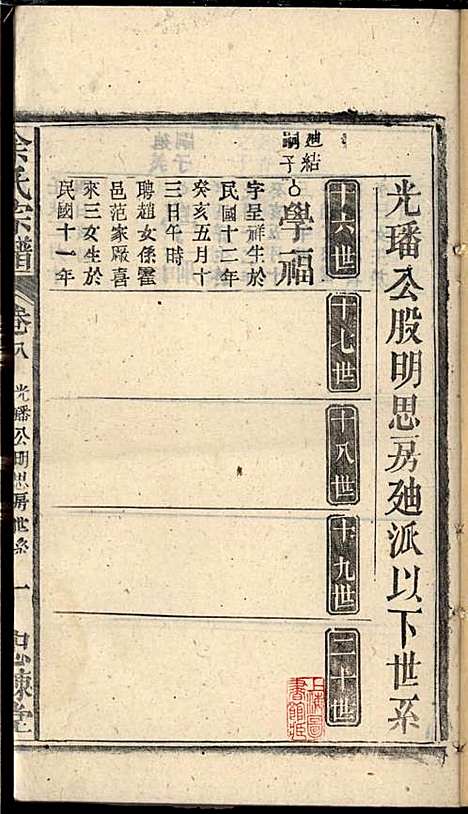 光璠公股明思房廸派以下世系
十六世
十七世
十八世
十九世
二十世
廸結
嗣子
學福
字呈祥生於
民國十二年
癸亥五月十
三日午時
聘趙女係霍
邑范家廠喜
來三女生於
民國十一年
余氏宗譜
卷八
光璠公明思房世系
一
忠諫堂
上海圖
書館藏